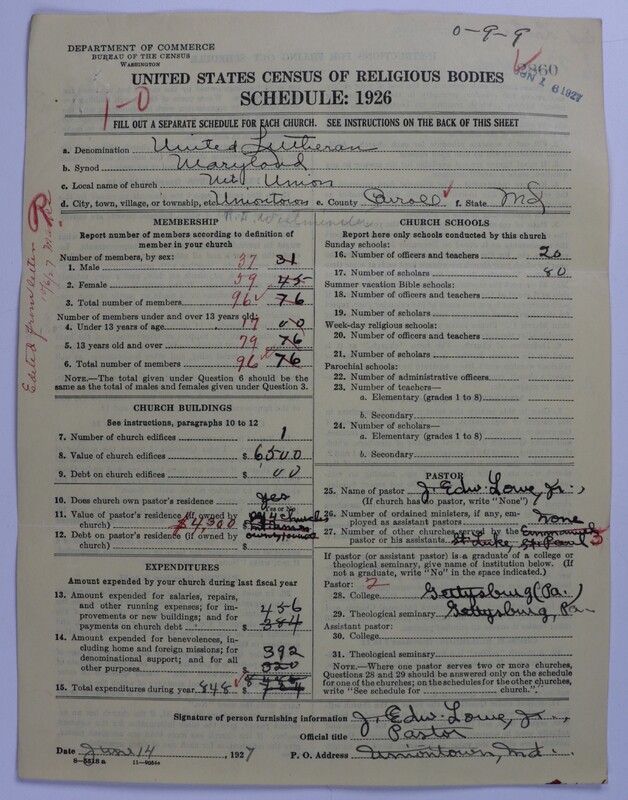 0-9-9
DEPARTMENT OF COMMERCE
BUREAU OF THE CENSUS
WASHINGTON
UNITED STATES CENSUS OF RELIGIOUS BODIES
SCHEDULE: 1926
1-0
FILL OUT A SEPARATE SCHEDULE FOR EACH CHURCH. SEE INSTRUCTIONS ON THE BACK OF THIS SHEET
a. Denomination United Lutheran
b. Synod Maryland
c. Local name of church Mt. Union
d. City, town, village, or township, etc. Uniontown e. County Carroll f. State Md
MEMBERSHIP
Report number of members according to definition of member in your church
Number of members, by sex:
1. Male 37 31
2. Female 59 45
3. Total number of members 96 76
Number of members under and over 13 years old:
4. Under 13 years of age 17 00
5. 13 years old and over 79 76
6. Total number of members 96 76
NOTE.—The total given under Question 6 should be the same as the total of males and females given under Question 3.
CHURCH BUILDINGS
See instructions, paragraphs 10 to 12
7. Number of church edifices 1
8. Value of church edifices $ 6500
9. Debt on church edifices $ 00
10. Does church own pastor's residence? yes
Yes or No
11. Value of pastor's residence (if owned by church) $4,300
12. Debt on pastor's residence (if owned by church)
EXPENDITURES
Amount expended by your church during last fiscal year
13. Amount expended for salaries, repairs, and other running expenses; for improvements or new buildings; and for payments on church debt $ 456 384
14. Amount expended for benevolences, including home and foreign missions; for denominational support; and for all other purposes $ 392
15. Total expenditures during year 848 $
CHURCH SCHOOLS
Report here only schools conducted by this church
Sunday schools:
16. Number of officers and teachers 20
17. Number of scholars 80
Summer vacation Bible schools:
18. Number of officers and teachers
19. Number of scholars
Week-day religious schools:
20. Number of officers and teachers
21. Number of scholars
Parochial schools:
22. Number of administrative officers
23. Number of teachers—
a. Elementary (grades 1 to 8)
b. Secondary
24. Number of scholars—
a. Elementary (grades 1 to 8)
b. Secondary
PASTOR
25. Name of pastor J. Edw. Lowe, Jr.,
(If church has no pastor, write "None")
26. Number of ordained ministers, if any, employed as assistant pastors none
27. Number of other churches served by the pastor or his assistants Emmanuel St. Luke, St. Paul 3
If pastor (or assistant pastor) is a graduate of a college or theological seminary, give name of institution below. (If not a graduate, write "No" in the space indicated.)
Pastor: 2
28. College Gettysburg (Pa.)
29. Theological seminary Gettysburg, Pa.
Assistant pastor:
30. College
31. Theological seminary
NOTE.—Where one pastor serves two or more churches, Questions 28 and 29 should be answered only on the schedule for one of the churches; on the schedules for the other churches, write "See schedule for church."
Signature of person furnishing information J. Edw. Lowe, Jr.,
Official title Pastor
Date June 14 1927 P. O. Address Uniontown, Md.
11-9034